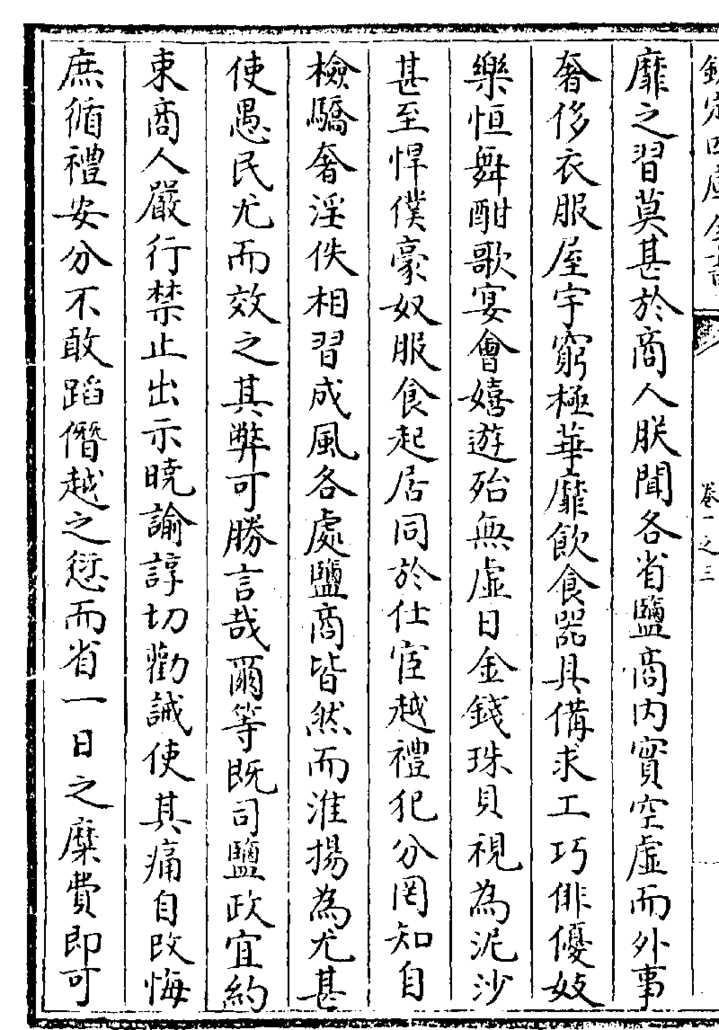 欽定四庫全書
卷一之三
靡之習莫甚於商人朕聞各省鹽商内實空虛而外事
奢侈衣服屋宇窮極華靡飲食器具備求工巧俳優妓
樂恒舞酣歌宴會嬉遊殆無虛日金錢珠貝視為泥沙
甚至悍僕豪奴服食起居同於仕宦越禮犯分罔知自
檢驕奢淫佚相習成風各處鹽商皆然而淮揚為尤甚
使愚民尤而效之其弊可勝言哉爾等既司鹽政宜約
束商人嚴行禁止出示曉諭諄切勸誡使其痛自改悔
庶循禮安分不敢蹈僭越之愆而省一日之糜費即可